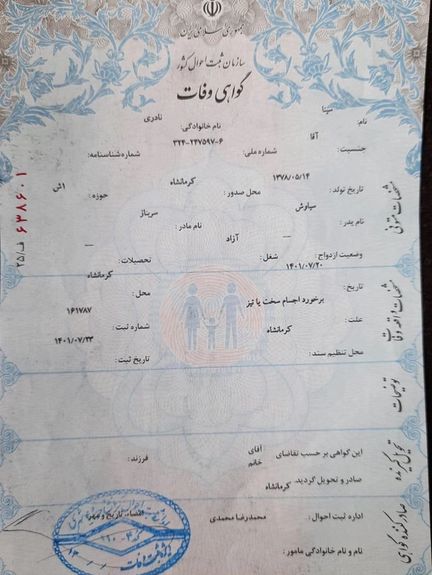 جمهوری اسلامی ایران
سازمان ثبت احوال کشور
گواهی وفات
نام: مینا
نام خانوادگی: نادری
جنسیت: آقا
شماره ملی: ۳۲۴-۲۴۷۵۹۷-۶
شماره شناسنامه:
تاریخ تولد: ۱۳۷۸/۰۵/۱۴
محل صدور: کرمانشاه
حوزه:
نام پدر: سیاوش
نام مادر: سریناز
وضعیت ازدواج: —
شغل: آزاد
تحصیلات: —
تاریخ: ۱۴۰۱/۰۷/۲۰
محل: کرمانشاه
علت: برخورد اجسام سخت یا تیز
شماره ثبت: ۱۶۱۷۸۷
محل تنظیم سند: کرمانشاه
تاریخ ثبت: ۱۴۰۱/۰۷/۲۳
این گواهی بر حسب تقاضای آقای خانم
فرزند:
صادر و تحویل گردید.
اداره ثبت احوال: کرمانشاه
امضاء، تاریخ و مهر
نام و نام خانوادگی مامور: محمدرضا محمدی
مشخصات متوفی
مشخصات واقعه وفات
توضیحات
تحویل گیرنده
صادر کننده گواهی
۶۳۸۶۰۱ ف/۲۵